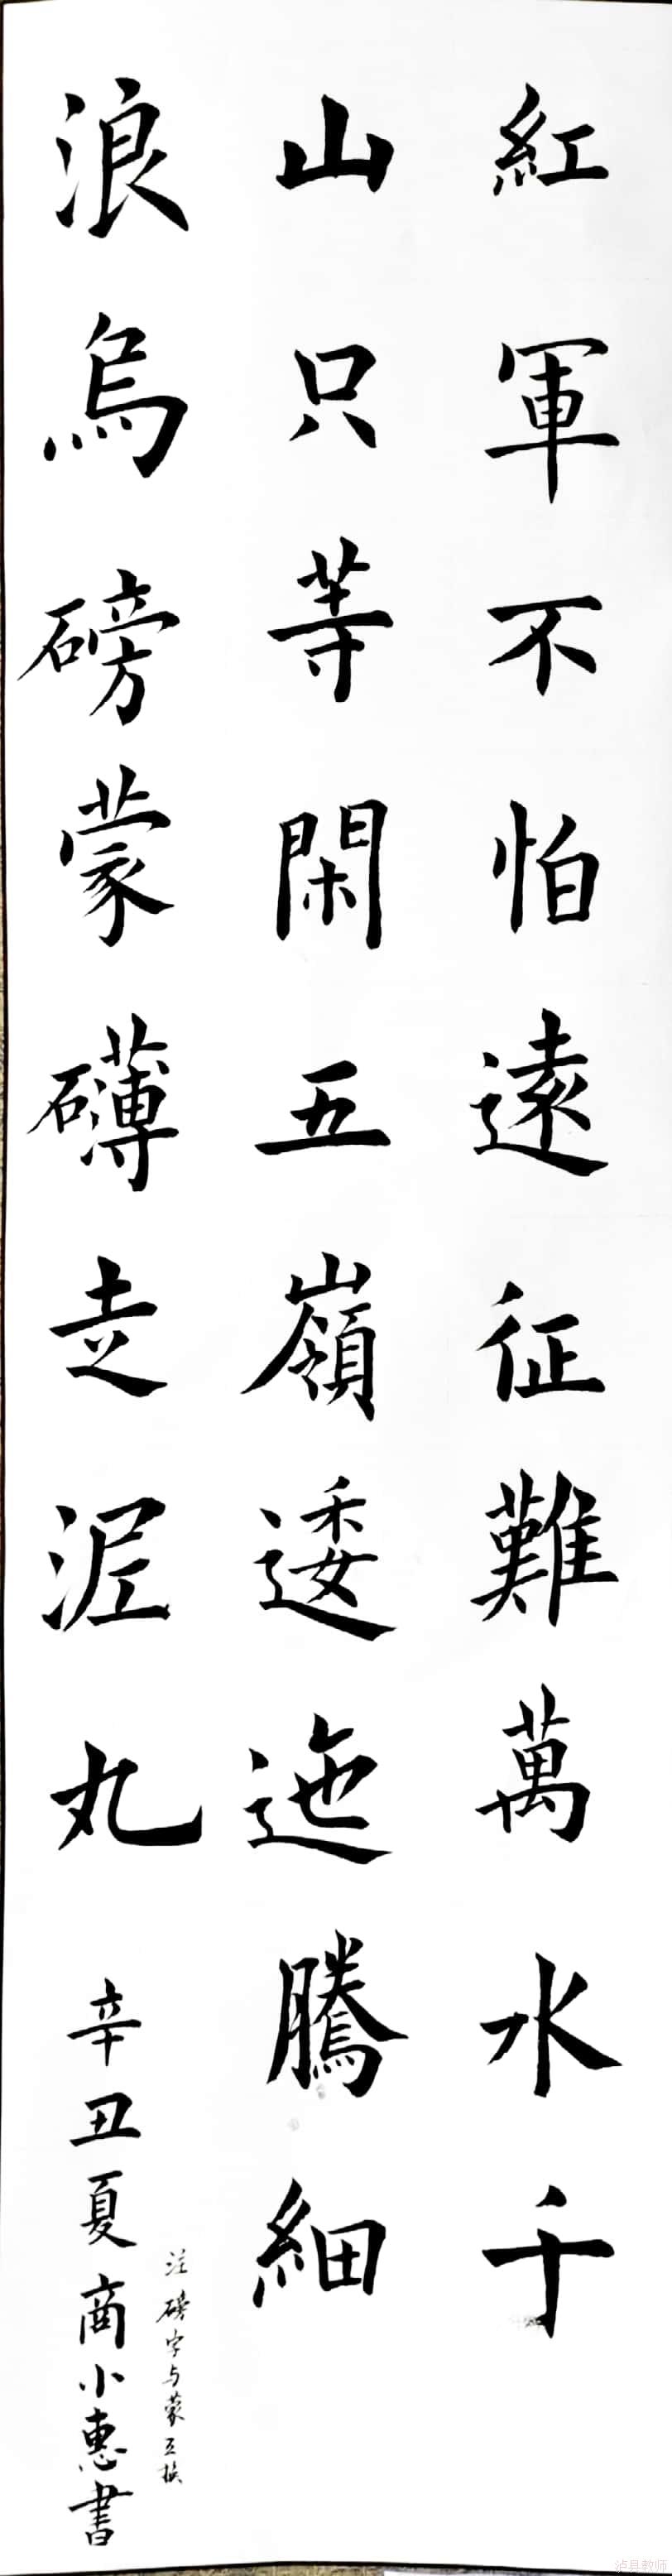 紅軍不怕遠征難萬水千
山只等閑五嶺逶迤騰細
浪烏磅蒙礴走泥丸
注磅字与蒙互换
辛丑夏商小惠書
泸县教师